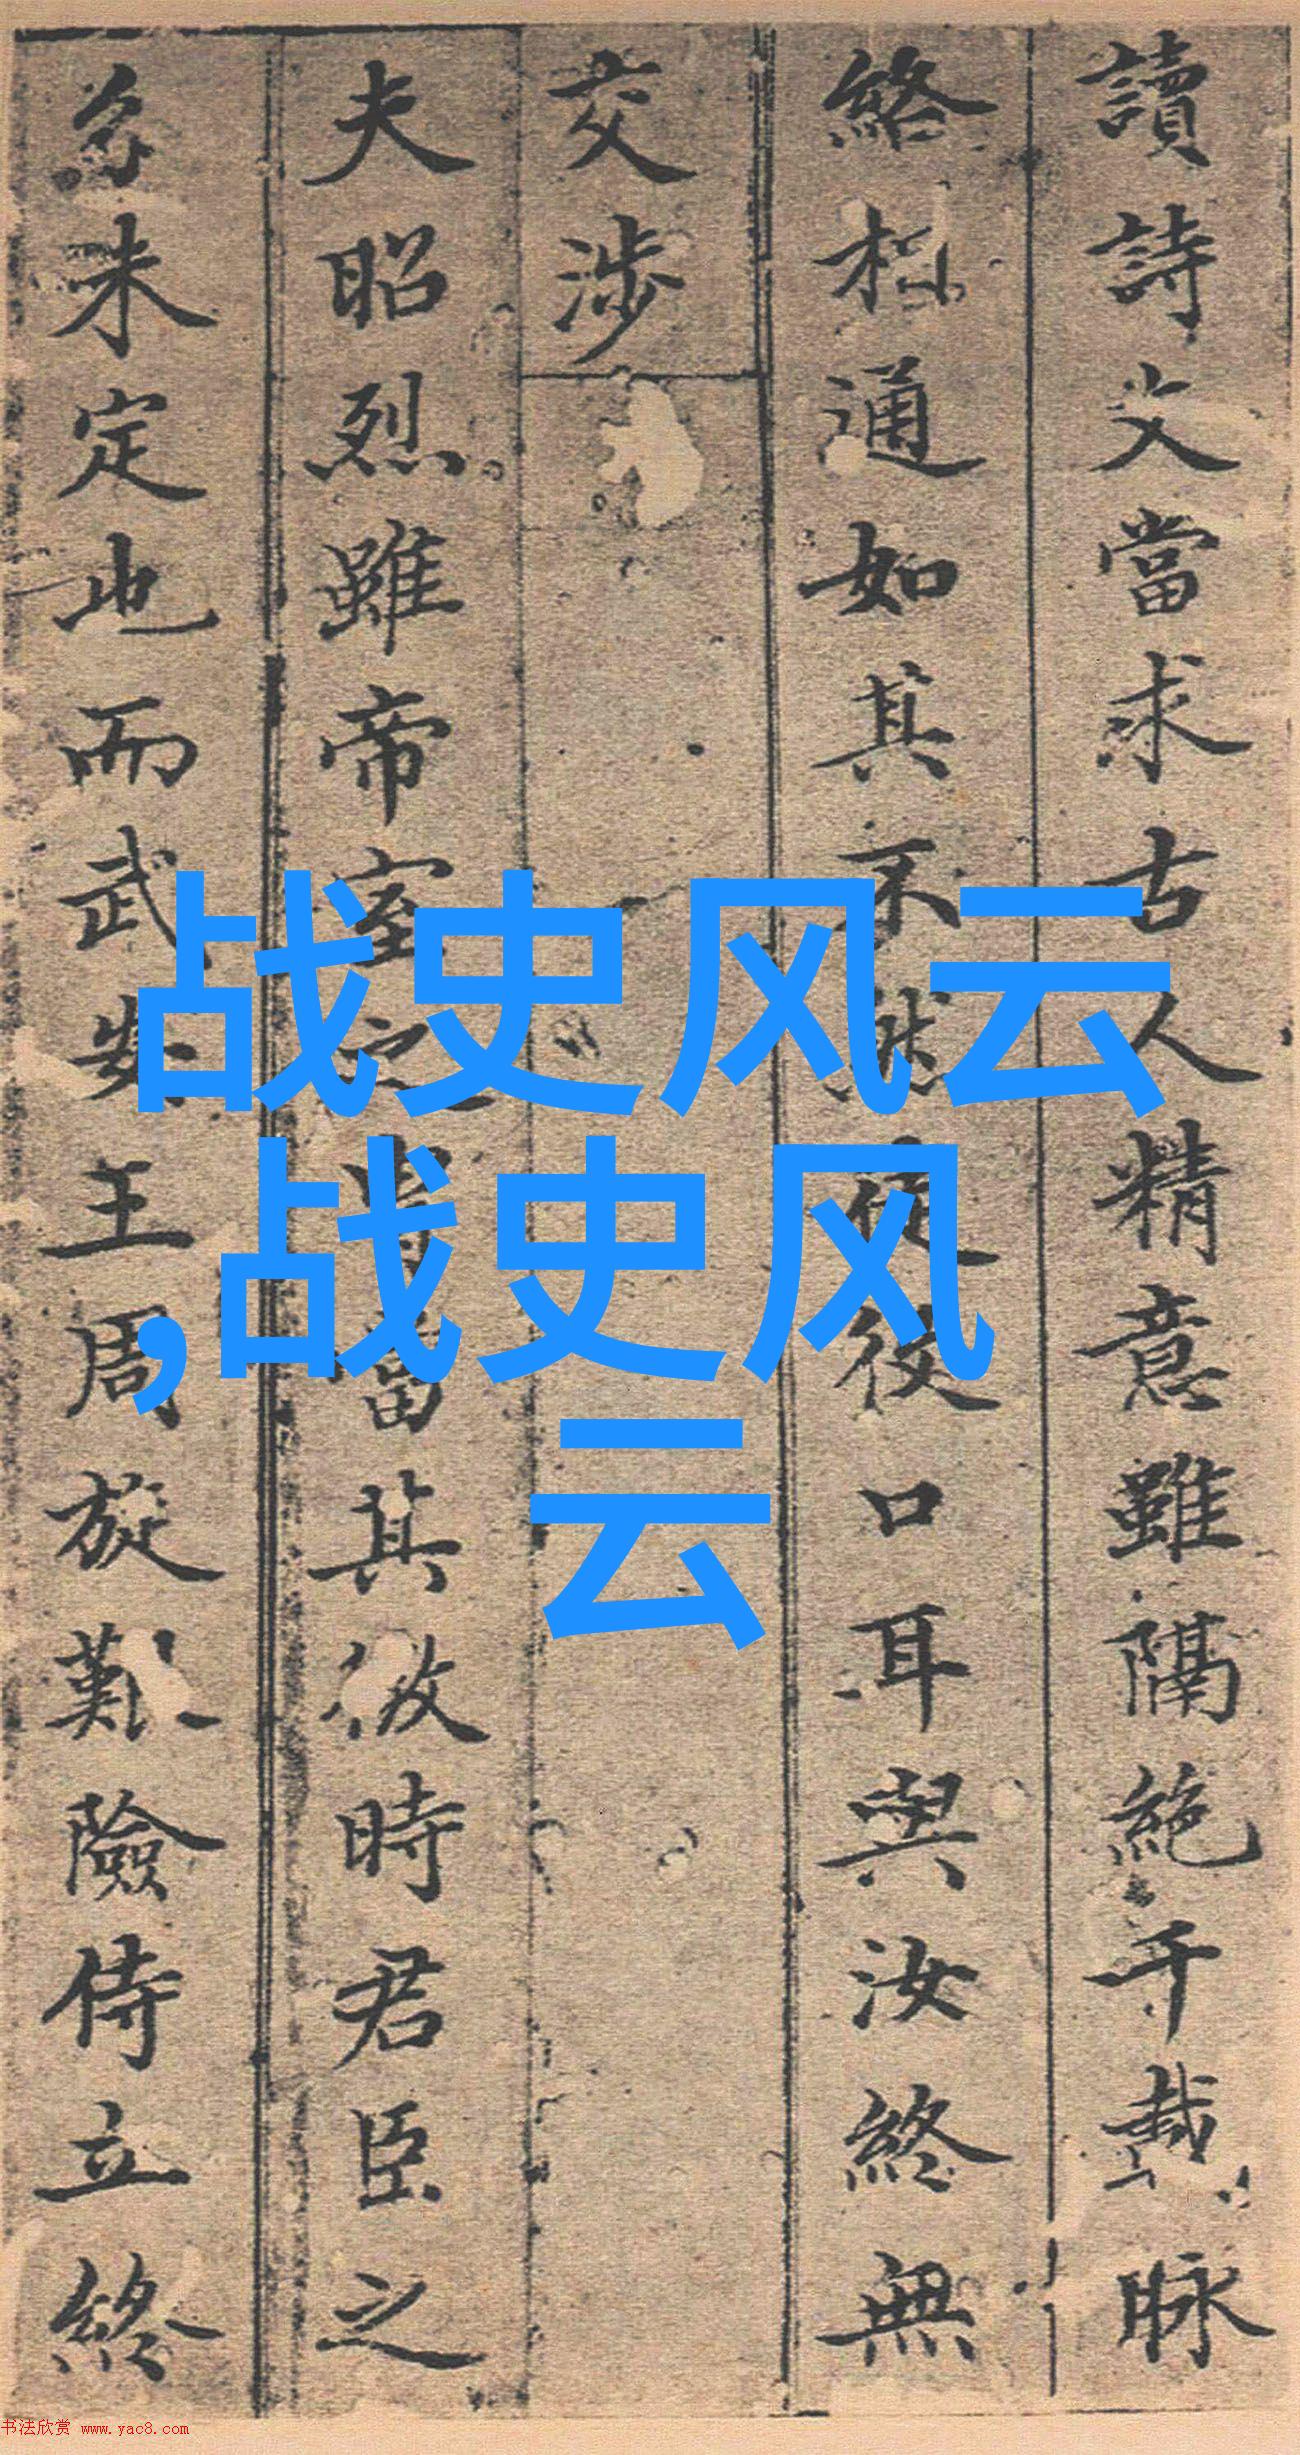 讀詩文當求古人精意雖隔絶千載脉
絡相通如其不然徒役口耳與汝終無
交涉
夫昭烈雖帝室之胄當其微時君臣之
分未定也而武安王周旋艱險侍立終
战史风云
,战史风
云
书法欣赏 www.yac8.com